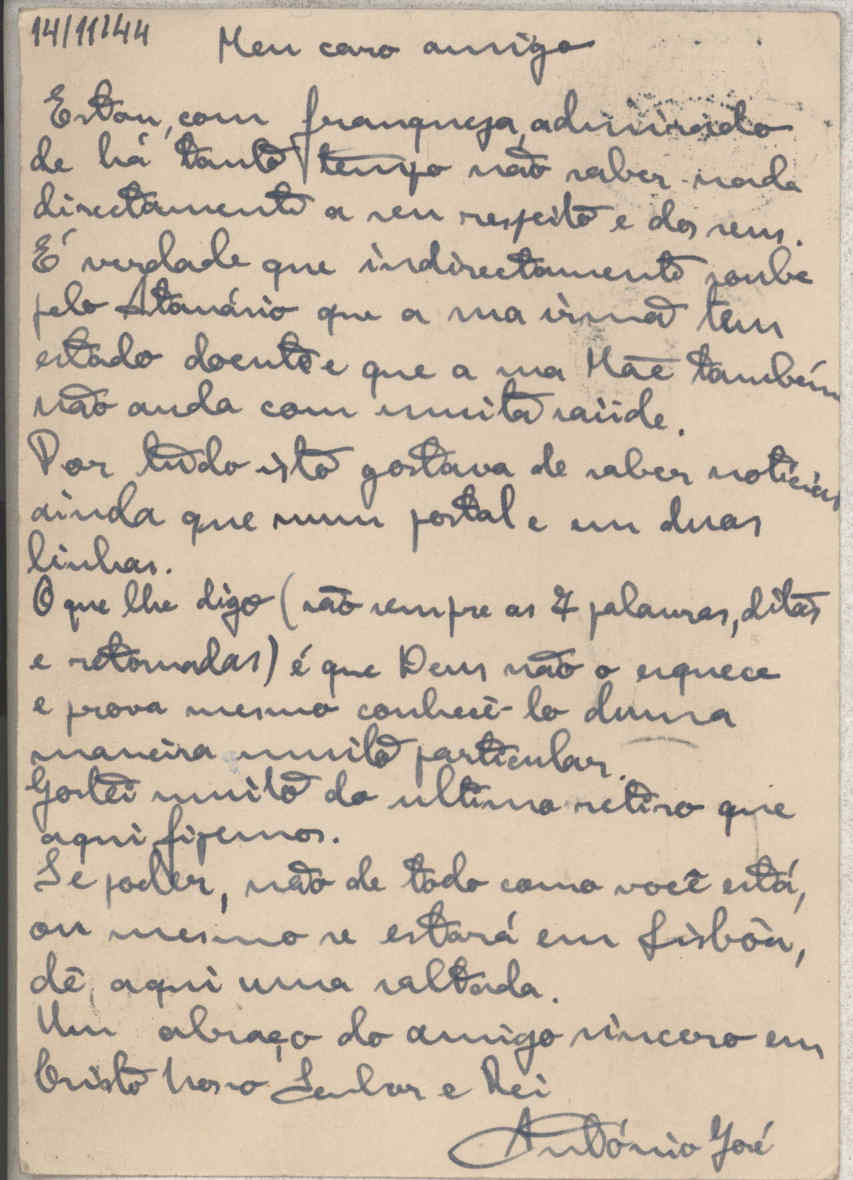 14/11/44
Meu caro amigo
Estou, com franqueza, admirado
de há tanto tempo não saber nada
directamente a seu respeito e dos seus.
É verdade que indirectamente soube
pelo Atanásio que a sua irmã tem
estado doente e que a sua Mãe também
não anda com muita saúde.
Por tudo isto gostava de saber notícias
ainda que num postal e em duas
linhas.
O que lhe digo (não sempre as 7 palavras, ditas
e retomadas) é que Deus não o esquece
e prova mesmo conhecê-lo duma
maneira muito particular.
Gostei muito do ultimo retiro que
aqui fizemos.
Se poder, não de todo como você está,
ou mesmo se estará em Lisbôa,
dê, aqui uma saltada.
Um abraço do amigo sincero em
Cristo Nosso Senhor e Rei
António José